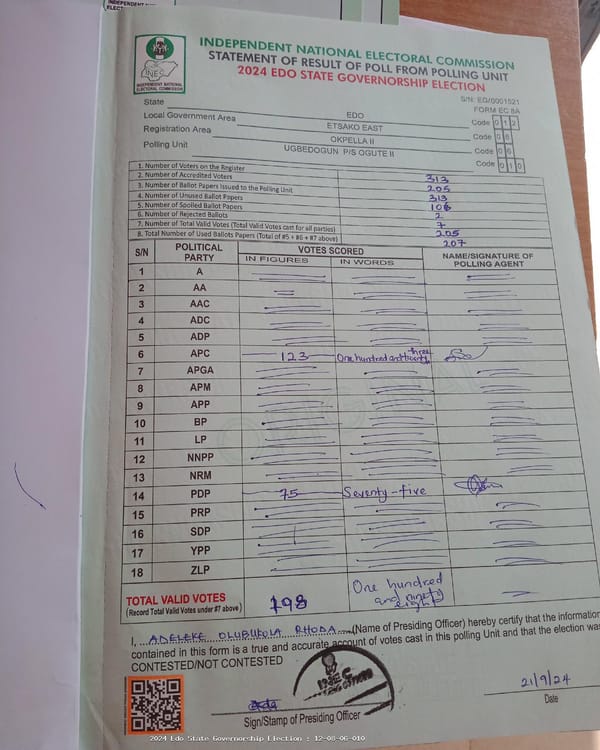 INDEPENDENT NATIONAL ELECTORAL COMMISSION
STATEMENT OF RESULT OF POLL FROM POLLING UNIT
2024 EDO STATE GOVERNORSHIP ELECTION
INEC
INDEPENDENT NATIONAL ELECTORAL COMMISSION
S/N: EG/0001521
FORM EC 8A
State EDO Code 0 1 2
Local Government Area ETSAKO EAST Code 0 8
Registration Area OKPELLA II Code 0 6
Polling Unit UGBEDOGUN P/S OGUTE II Code 0 1 0
1. Number of Voters on the Register 313
2. Number of Accredited Voters 205
3. Number of Ballot Papers Issued to the Polling Unit 313
4. Number of Unused Ballot Papers 106
5. Number of Spoiled Ballot Papers 2
6. Number of Rejected Ballots 7
7. Number of Total Valid Votes (Total Valid Votes cast for all parties) 205
8. Total Number of Used Ballots Papers (Total of #5 + #6 + #7 above) 207
S/N POLITICAL PARTY VOTES SCORED NAME/SIGNATURE OF POLLING AGENT
IN FIGURES IN WORDS
1 A
2 AA
3 AAC
4 ADC
5 ADP
6 APC 123 One hundred and twenty three
7 APGA
8 APM
9 APP
10 BP
11 LP
12 NNPP
13 NRM
14 PDP 75 Seventy-five
15 PRP
16 SDP
17 YPP
18 ZLP
TOTAL VALID VOTES 198 One hundred and ninety eight
(Record Total Valid Votes under #7 above)
I, ADELEKE OLUBUKOLA RHODA (Name of Presiding Officer) hereby certify that the information
contained in this form is a true and accurate account of votes cast in this polling Unit and that the election was
CONTESTED/NOT CONTESTED
INEC
21/9/24
Sign/Stamp of Presiding Officer
Date
2024 Edo State Governorship Election : 12-08-06-010